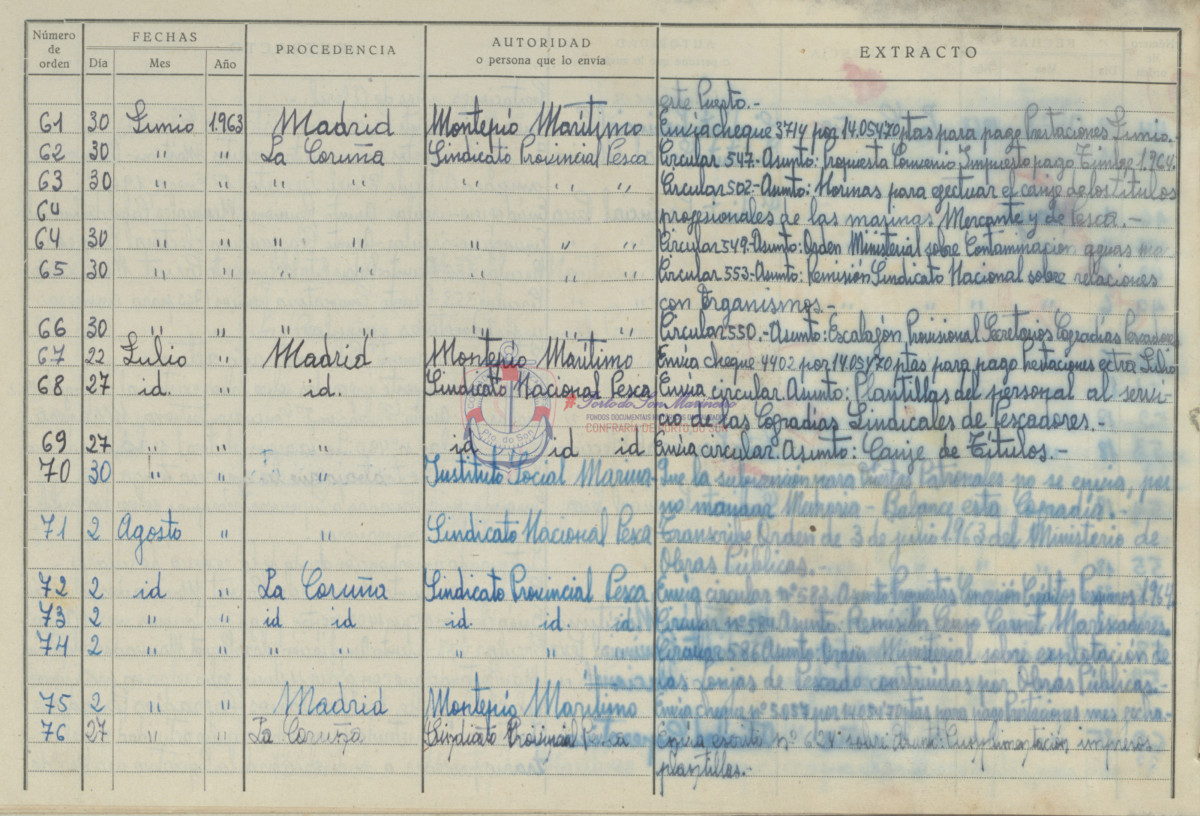 Número de orden FECHAS PROCEDENCIA AUTORIDAD o persona que lo envía EXTRACTO
Día Mes Año
este Puerto.-
61 30 Junio 1.963 Madrid Montepío Marítimo Envia cheque 3714 por 14.054,70 ptas para pago Prestaciones Junio.
62 30 " " La Coruña Sindicato Provincial Pesca Circular 547.-Asunto: Propuesta Convenio Impuesto pago Timbre 1.964.
63 30 " " " " " " " Circular 502.-Asunto: Normas para efectuar el canje de los titulos
64 profesionales de las marinas Mercante y de Pesca.-
64 30 " " " " " " " Circular 549-Asunto: Orden Ministerial sobre Contaminación aguas
65 30 " " " " " " " Circular 553-Asunto: Remisión Sindicato Nacional sobre relaciones
con Organismos.-
66 30 " " " " " " " Circular 550.-Asunto: Escalafón Provisional Secretarios Cofradias Pescadores
67 22 Julio " Madrid Montepío Marítimo Envia cheque 4402 por 14.054,70 ptas para pago Prestaciones extra Julio
68 27 id. " id. Sindicato Nacional Pesca Envia circular. Asunto: Plantillas del personal al servi-
cio de las Cofradias Sindicales de Pescadores.-
#PortodoSonMariñeiro
FONDOS DOCUMENTAIS
CONFRARÍA DE PORTO DO SON
69 27 " " " id id id Envia circular. Asunto: Canje de Títulos.-
70 30 " " " Instituto Social Marina Que la subvención para Fiestas Patronales no se envia, por
no mandar Memoria - Balance esta Cofradía.-
71 2 Agosto " " Sindicato Nacional Pesca Transcribe Orden de 3 de julio 1.963 del Ministerio de
Obras Públicas.-
72 2 id " La Coruña Sindicato Provincial Pesca Envia circular nº 583. Asunto Propuestas Concesión Créditos 1964
73 2 " " id id id. id. id Circular nº 584 Asunto: Remisión Censo Carnet Mariscadores.
74 2 " " " " " " " Circular 586 Asunto: Orden Ministerial sobre explotación de
las Lonjas de Pescado construidas por Obras Públicas.-
75 2 " " Madrid Montepío Marítimo Envia cheque nº 5.057 por 14.054,70 ptas para pago Prestaciones mes
76 27 " " La Coruña Sindicato Provincial Pesca Envia escrito nº Cumplimentación impresos
plantillas.-